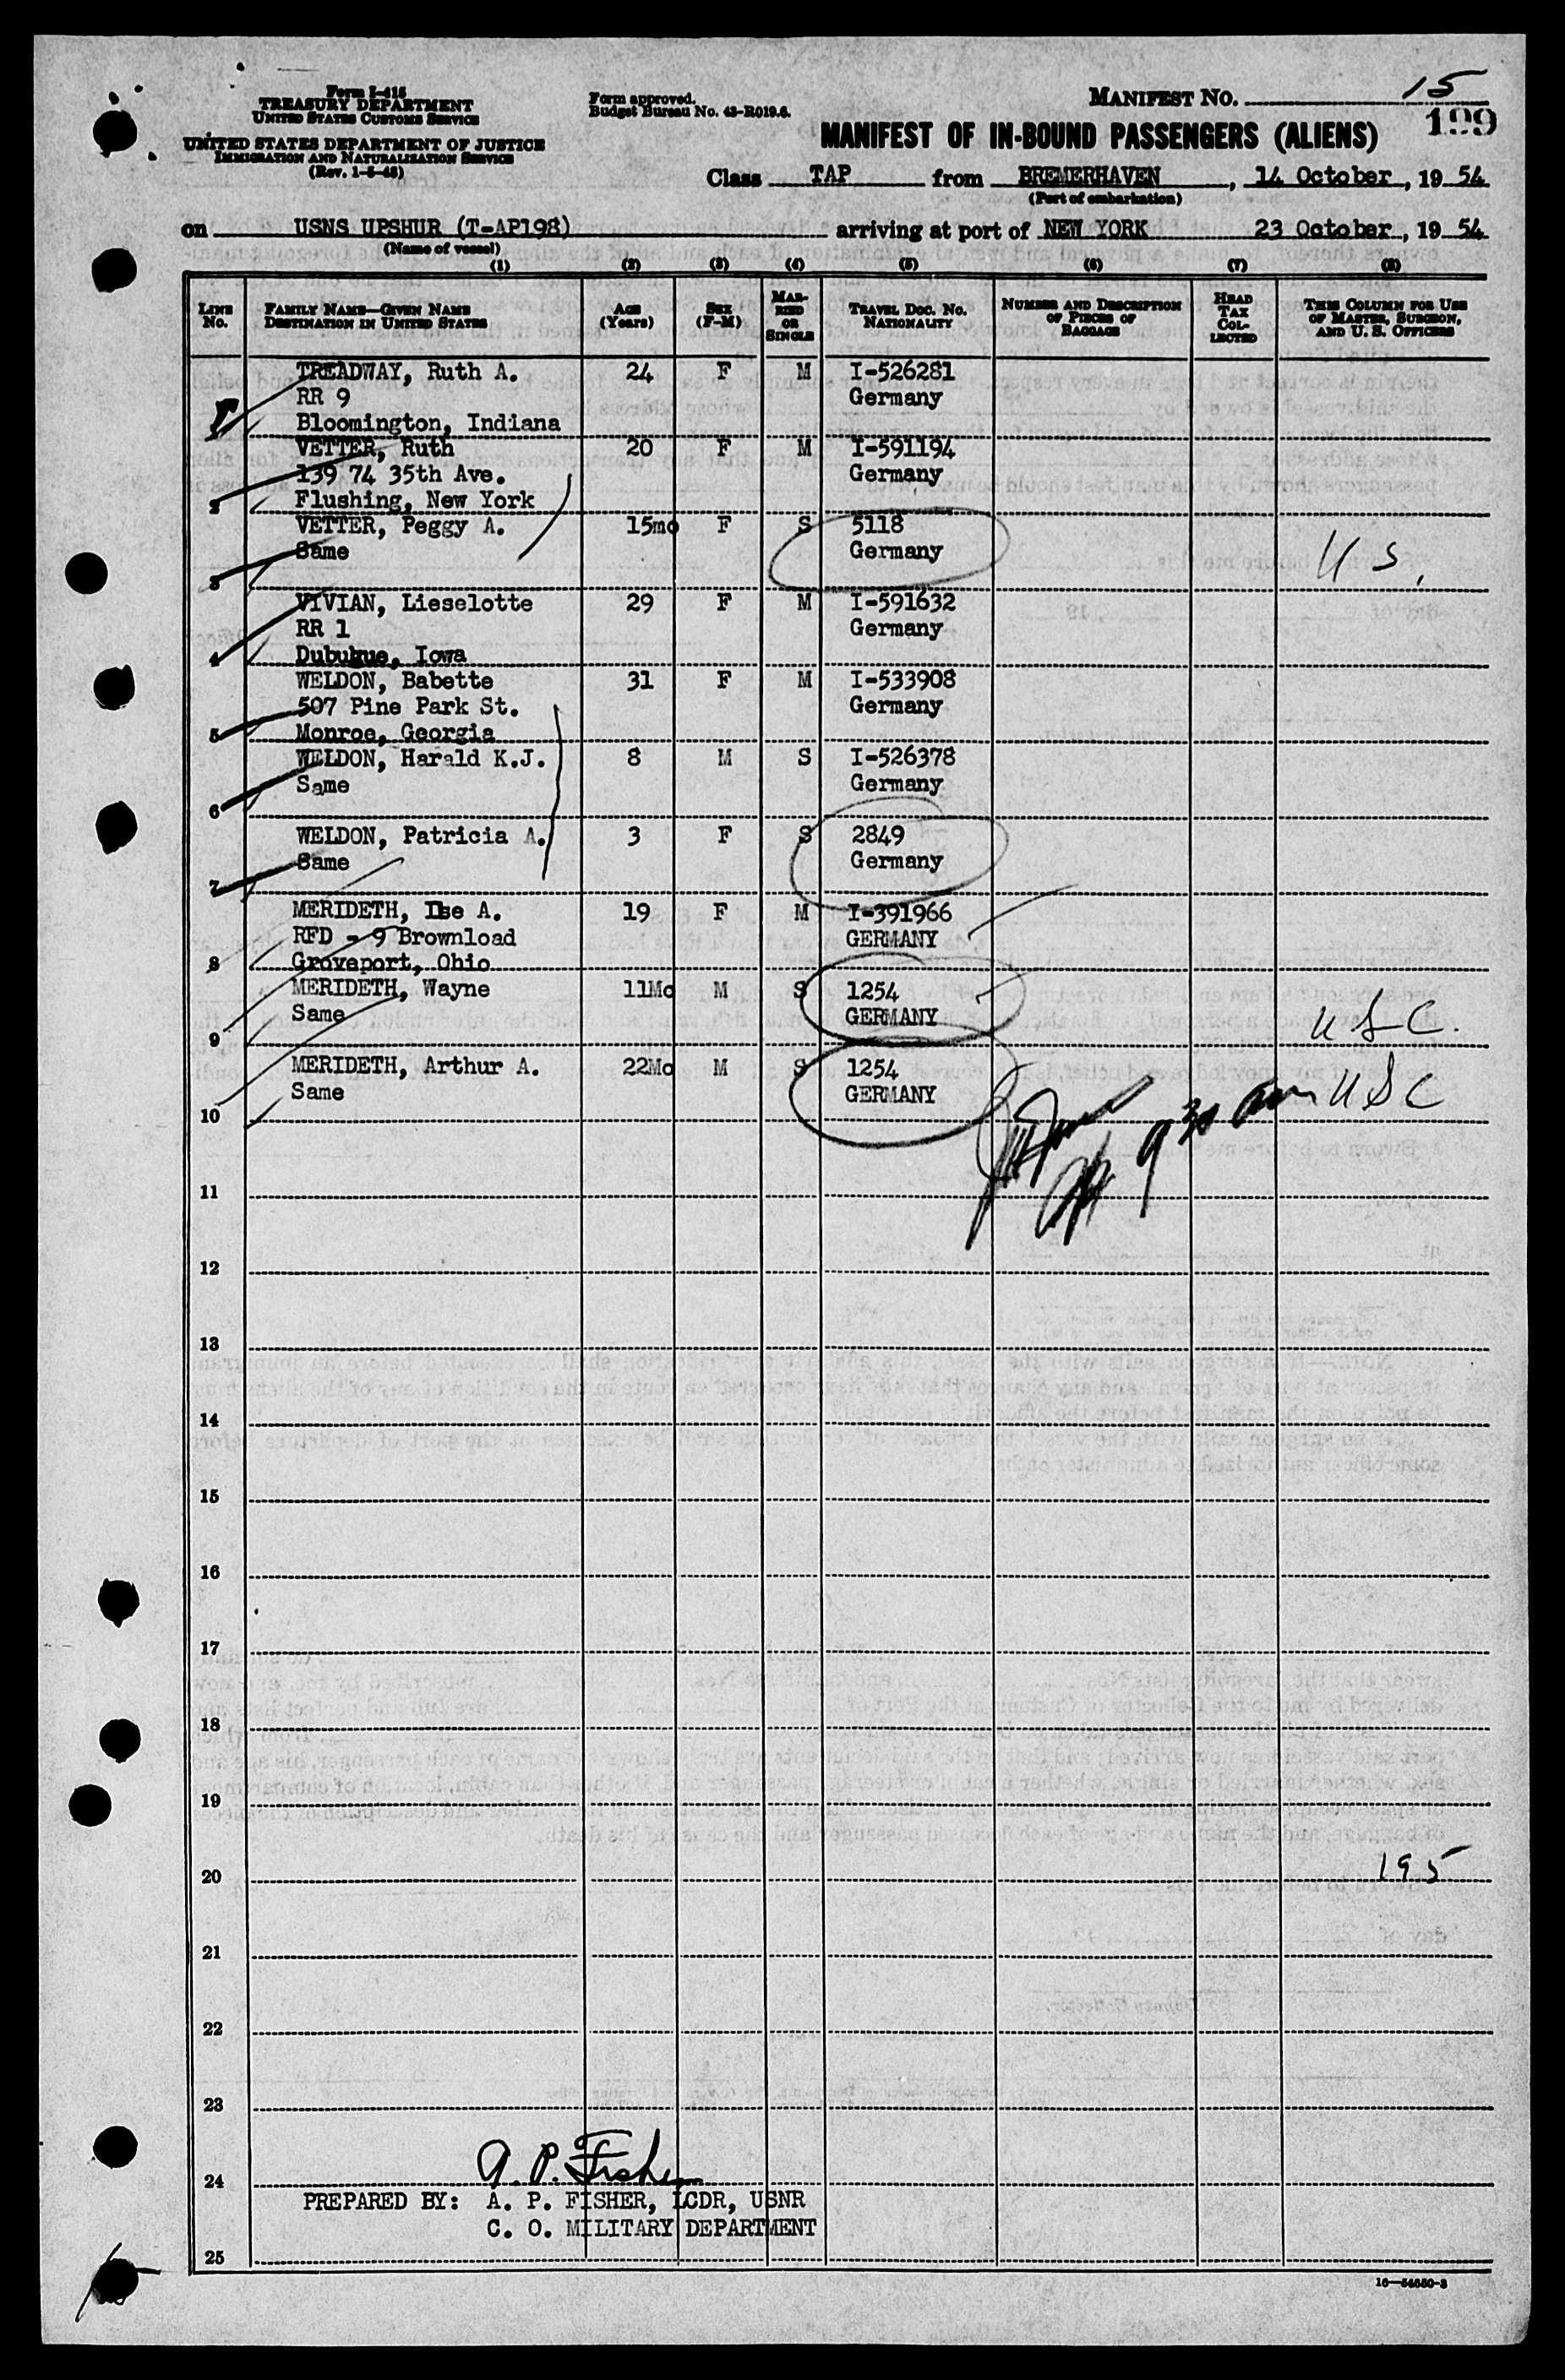 Form I-415
TREASURY DEPARTMENT
UNITED STATES CUSTOMS SERVICE
UNITED STATES DEPARTMENT OF JUSTICE
IMMIGRATION AND NATURALIZATION SERVICE
(Rev. 1-5-48)
Form approved.
Budget Bureau No. 43-R019.6.
MANIFEST NO. 15
199
MANIFEST OF IN-BOUND PASSENGERS (ALIENS)
Class TAP from BREMERHAVEN, 14 October, 1954
(Port of embarkation)
on USNS UPSHUR (T-AP198) arriving at port of NEW YORK 23 October, 1954
(Name of vessel)
(1) (2) (3) (4) (5) (6) (7) (8)
LINE No. FAMILY NAME—GIVEN NAME DESTINATION IN UNITED STATES AGE (Years) SEX (F-M) MARRIED OR SINGLE TRAVEL DOC. NO. NATIONALITY NUMBER AND DESCRIPTION OF PIECES OF BAGGAGE HEAD TAX COLLECTED THIS COLUMN FOR USE OF MASTER, SURGEON, AND U. S. OFFICERS
TREADWAY, Ruth A. 24 F M I-526281
RR 9 Germany
Bloomington, Indiana
VETTER, Ruth 20 F M I-591194
139 74 35th Ave. Germany
2 Flushing, New York
VETTER, Peggy A. 15mo F S 5118
Same Germany U S.
3
VIVIAN, Lieselotte 29 F M I-591632
RR 1 Germany
4 Dubuque, Iowa
WELDON, Babette 31 F M I-533908
507 Pine Park St. Germany
5 Monroe, Georgia
WELDON, Harald K.J. 8 M S I-526378
Same Germany
6
WELDON, Patricia A. 3 F S 2849
Same Germany
7
MERIDETH, Ilse A. 19 F M I-391966
RFD - 9 Brownload GERMANY
8 Groveport, Ohio
MERIDETH, Wayne 11Mo M S 1254
Same GERMANY U S C.
9
MERIDETH, Arthur A. 22Mo M S 1254
Same GERMANY U S C
10
9 30 am
11
12
13
14
15
16
17
18
19
20 195
21
22
23
A. P. Fisher
24
PREPARED BY: A. P. FISHER, LCDR, USNR
C. O. MILITARY DEPARTMENT
25
16—54650-3